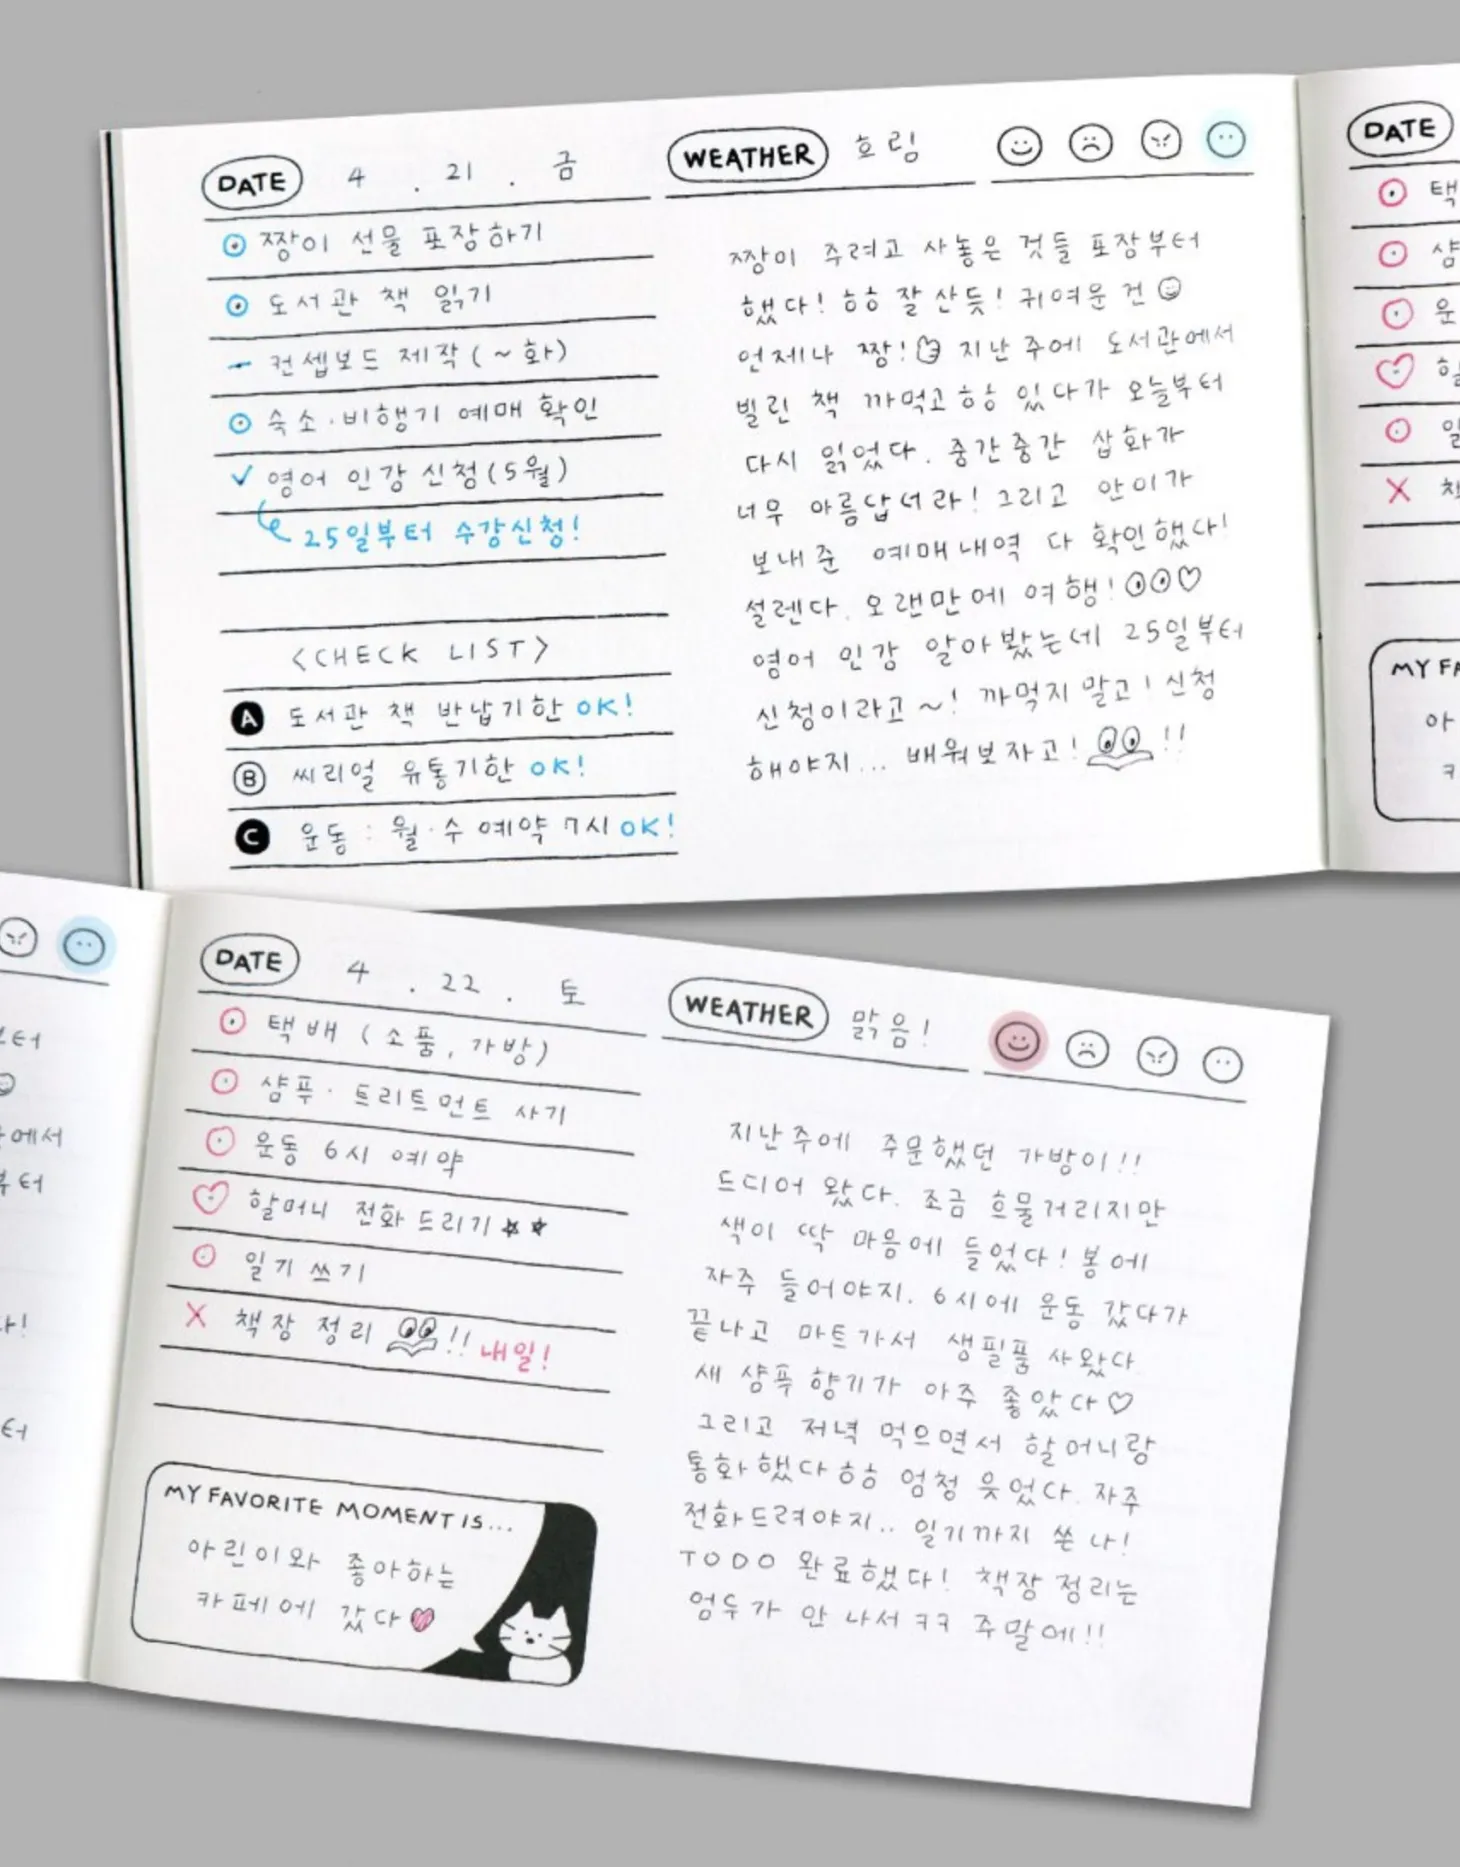 DATE 4 . 21 . 금
짱이 선물 포장하기
도서관 책 읽기
컨셉보드 제작 (~화)
숙소·비행기 예매 확인
영어 인강 신청 (5월)
25일부터 수강신청!
<CHECK LIST>
A 도서관 책 반납기한 OK!
B 씨리얼 유통기한 OK!
C 운동 : 월·수 예약 7시 OK!
WEATHER 흐림
짱이 주려고 사놓은 것들 포장부터
했다! 하하 잘 산듯! 귀여운 건
언제나 짱! 지난 주에 도서관에서
빌린 책 까먹고 하하 있다가 오늘부터
다시 읽었다. 중간중간 삽화가
너무 아름답서라! 그리고 안이가
보내준 예매내역 다 확인했다!
설렌다. 오랜만에 여행! ♡
영어 인강 알아봤는데 25일부터
신청이라고~! 까먹지 말고! 신청
해야지... 배워보자고! !!
DATE
택
샴
운
할
일
책
MY FA
아
카
부터
관에서
부터
다!
부터
DATE 4 . 22 . 토
택배 (소품, 가방)
샴푸·트리트먼트 사기
운동 6시 예약
할머니 전화 드리기 ☆★
일기 쓰기
X 책장 정리 !! 내일!
MY FAVORITE MOMENT IS...
아린이와 좋아하는
카페에 갔다♥
WEATHER 맑음!
지난주에 주문했던 가방이!!
드디어 왔다. 조금 흐물거리지만
색이 딱 마음에 들었다! 봄에
자주 들어야지. 6시에 운동 갔다가
끝나고 마트가서 생필품 사왔다.
새 샴푸 향기가 아주 좋았다♡
그리고 저녁 먹으면서 할머니랑
통화했다 하하 엄청 웃었다. 자주
전화드려야지.. 일기까지 쓴 나!
TODO 완료했다! 책장 정리는
엄두가 안 나서 ㅋㅋ 주말에!!